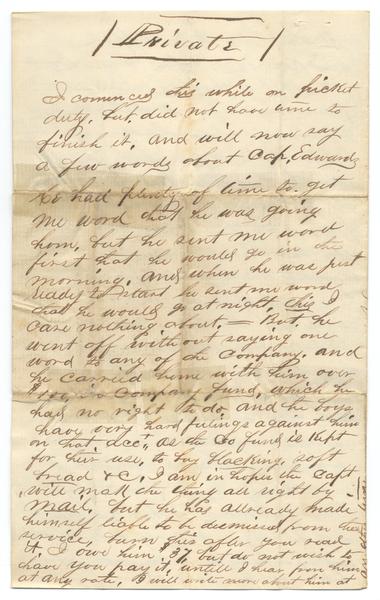 Private
I comenced this while on picket
duty. but did not have time to
finish it. and will now say
a few words about Cap. Edwards
he had plenty of time to get
me word that he was going
hom, but he sent me word
first that he would go in the
morning. and when he was just
ready to start he sent me word
that he would go at night this I
care nothing about. = But. he
went off without saying one
word to any of the Company. and
he carried home with him over
Company fund, which he
had no right to do and he boys
have very hard feelings against him
on that acct, as the Co fund is kept
for their use, to buy blacking, soft
bread &C, I am in hopes the Capt
will mak the thing all right by
Mail, but he has allready made
himself liable to be demissed from the
service, burn this after you read
it, I owe him $37, but do not wish to
have you pay it, untill I hear from him
at any rate, I will write more about him at